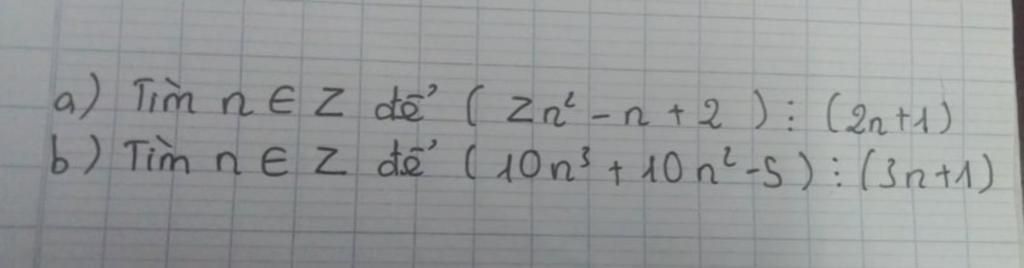 a) Tìm n ∈ Z để ( 2n² - n + 2 ) ⋮ (2n+1)
b) Tìm n ∈ Z để ( 10n³ + 10n² - 5 ) ⋮ (3n+1)